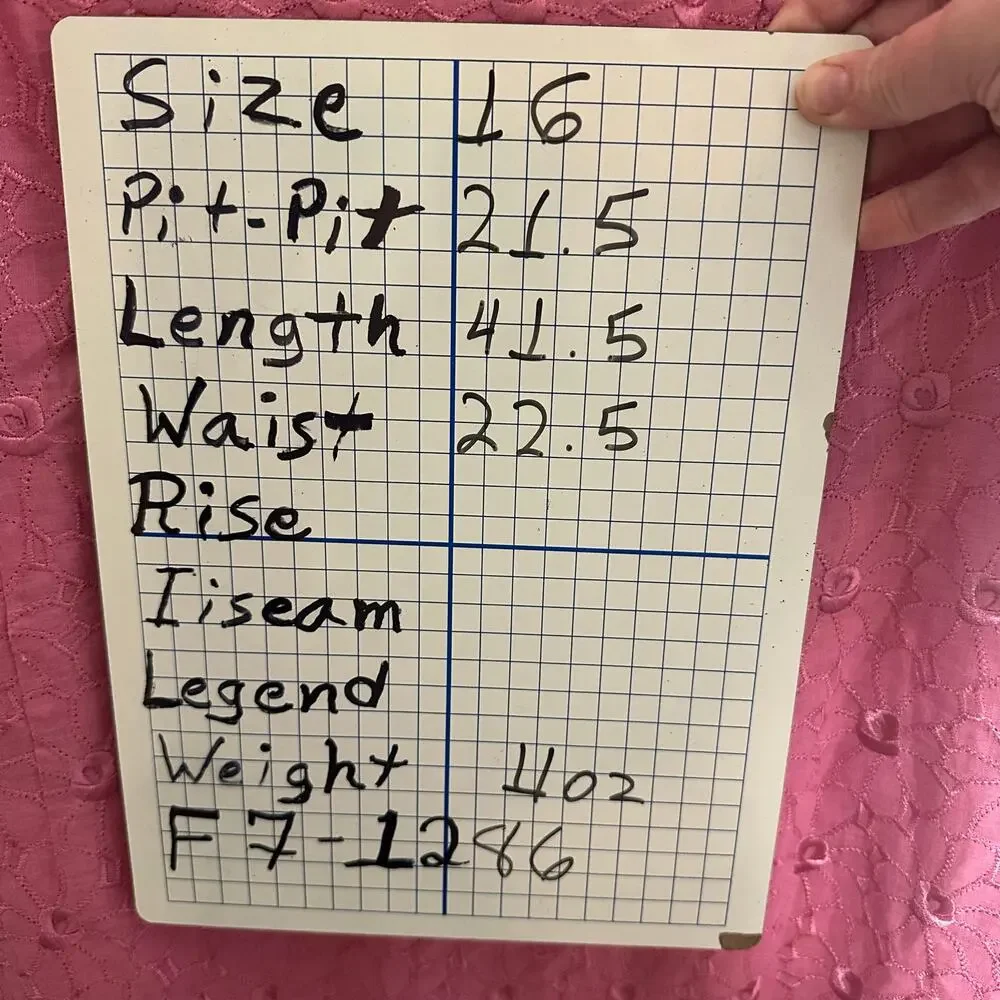 Size 16
Pit-Pit 21.5
Length 41.5
Waist 22.5
Rise
Iiseam
Legend
Weight 11oz
F7-1286